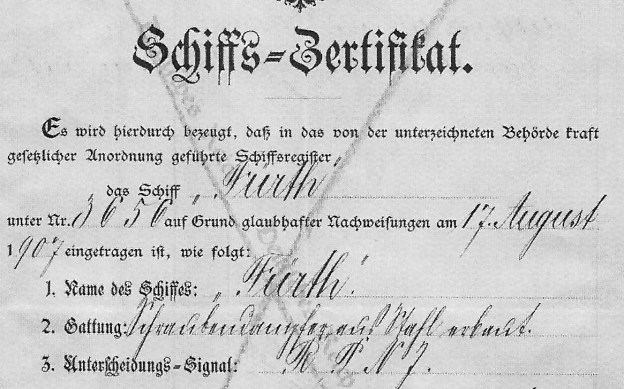 Schiffs-Zertifikat.
Es wird hierdurch bezeugt, daß in das von der unterzeichneten Behörde kraft
gesetzlicher Anordnung geführte Schiffsregister
das Schiff „Fürth“
unter Nr. 3656 auf Grund glaubhafter Nachweisungen am 17. August
1907 eingetragen ist, wie folgt:
1. Name des Schiffes: „Fürth“.
2. Gattung: Schraubendampfer aus Stahl erbaut.
3. Unterscheidungs-Signal: